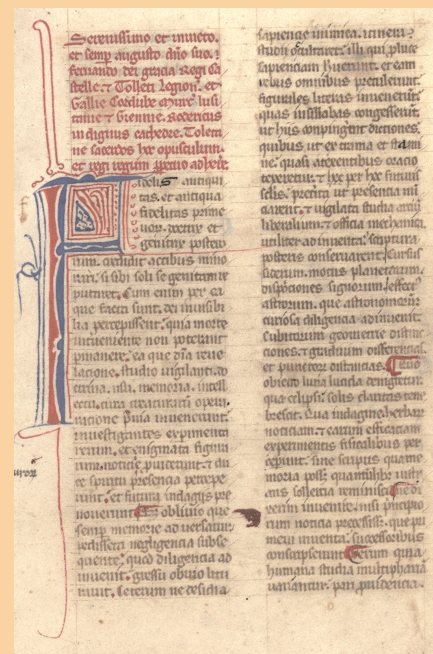 Serenissimo et invicto.
et semp augusto dño suo.
fernando dei gracia Regi Ca
stelle. ⁊ Tolleti Legioñ. et
Gallecie Cordube Murcie
indignus cathedre. Toleta
ne sacerdos hoc opusculum
et regi regum
Fidelis antiqui
tas. et antiqua
fidelitas prime
vorū. doctrix et
genitrix postero
rum. credidit actibus mino
rari. si sibi soli se genitam re
putaret. Cum enim per ea
que facta sunt. dei invisibi
lia percepisset. quia morte
interveniente non poterant
pmanere. ea que dīa reve
lacione. studio vigilanti. do
ctrina. usu. memoria. intell
ectu. cura creaturarū opera
cione
investigantes experimenta
rerum. et
spiritu presencia percepe
runt. et futura indagijs pre
noverunt. oblivio que
semp memorie adversatur
negligencia subse
quente. quod diligencia ad
invenit. gressu obvio liti
ravit. Ceterum ne desidia
sapiencie inimica. itineri
studii illi qui pluce
sapienciam et eam
rebus omnibus pretulerunt.
figurales literas invenerūt.
quas in sillabas congesserūt.
ut hijs compingerent dictiones.
quibus ut ex trama et stami
ne. quasi a texentibus oracio
texeretur. ⁊ per hec futuris
seculis. preterita ut presencia nū
ciarent. ⁊ vigilata studia artiū
liberalium. ⁊ officia mechanica
utiliter adinventa. scriptura
posteris conservarent. Cursus
siderum. motus planetarum.
disposiciones signorum. effectus
astrorum. que astronomorum
curiosa diligencia adinvenit.
cubitorum geometrie distinc
ciones. ⁊ graduum differencias.
et punctorum distancias.
obiectu lune lucida denigretur.
qua eclipsi. solis claritas tene
brescat. Qua indagine herbarū
noticiam. ⁊ earum efficaciam
experimentis fisicalibus per
cepiunt. sine scriptis que me
moria posset. quamlibet
sollercia reminisci
rerum invenire. nisi principio
rum noticia precessisset. que pri
mevi inventa. successoribus
conscripserunt. Verum quia
humana studia multiphariā
variantur. pari providencia.